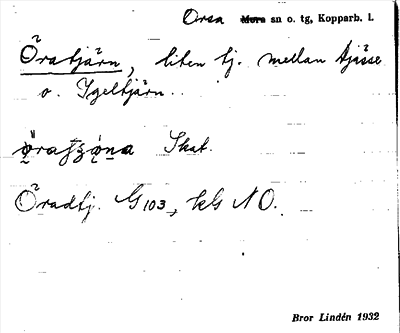 Orsa Mora sn o. tg, Kopparb. l.
Öratjärn, liten tj. mellan
o. Igeltjärn.
Skat.
Öradtj. G 103, kb NO.
Bror Lindén 1932